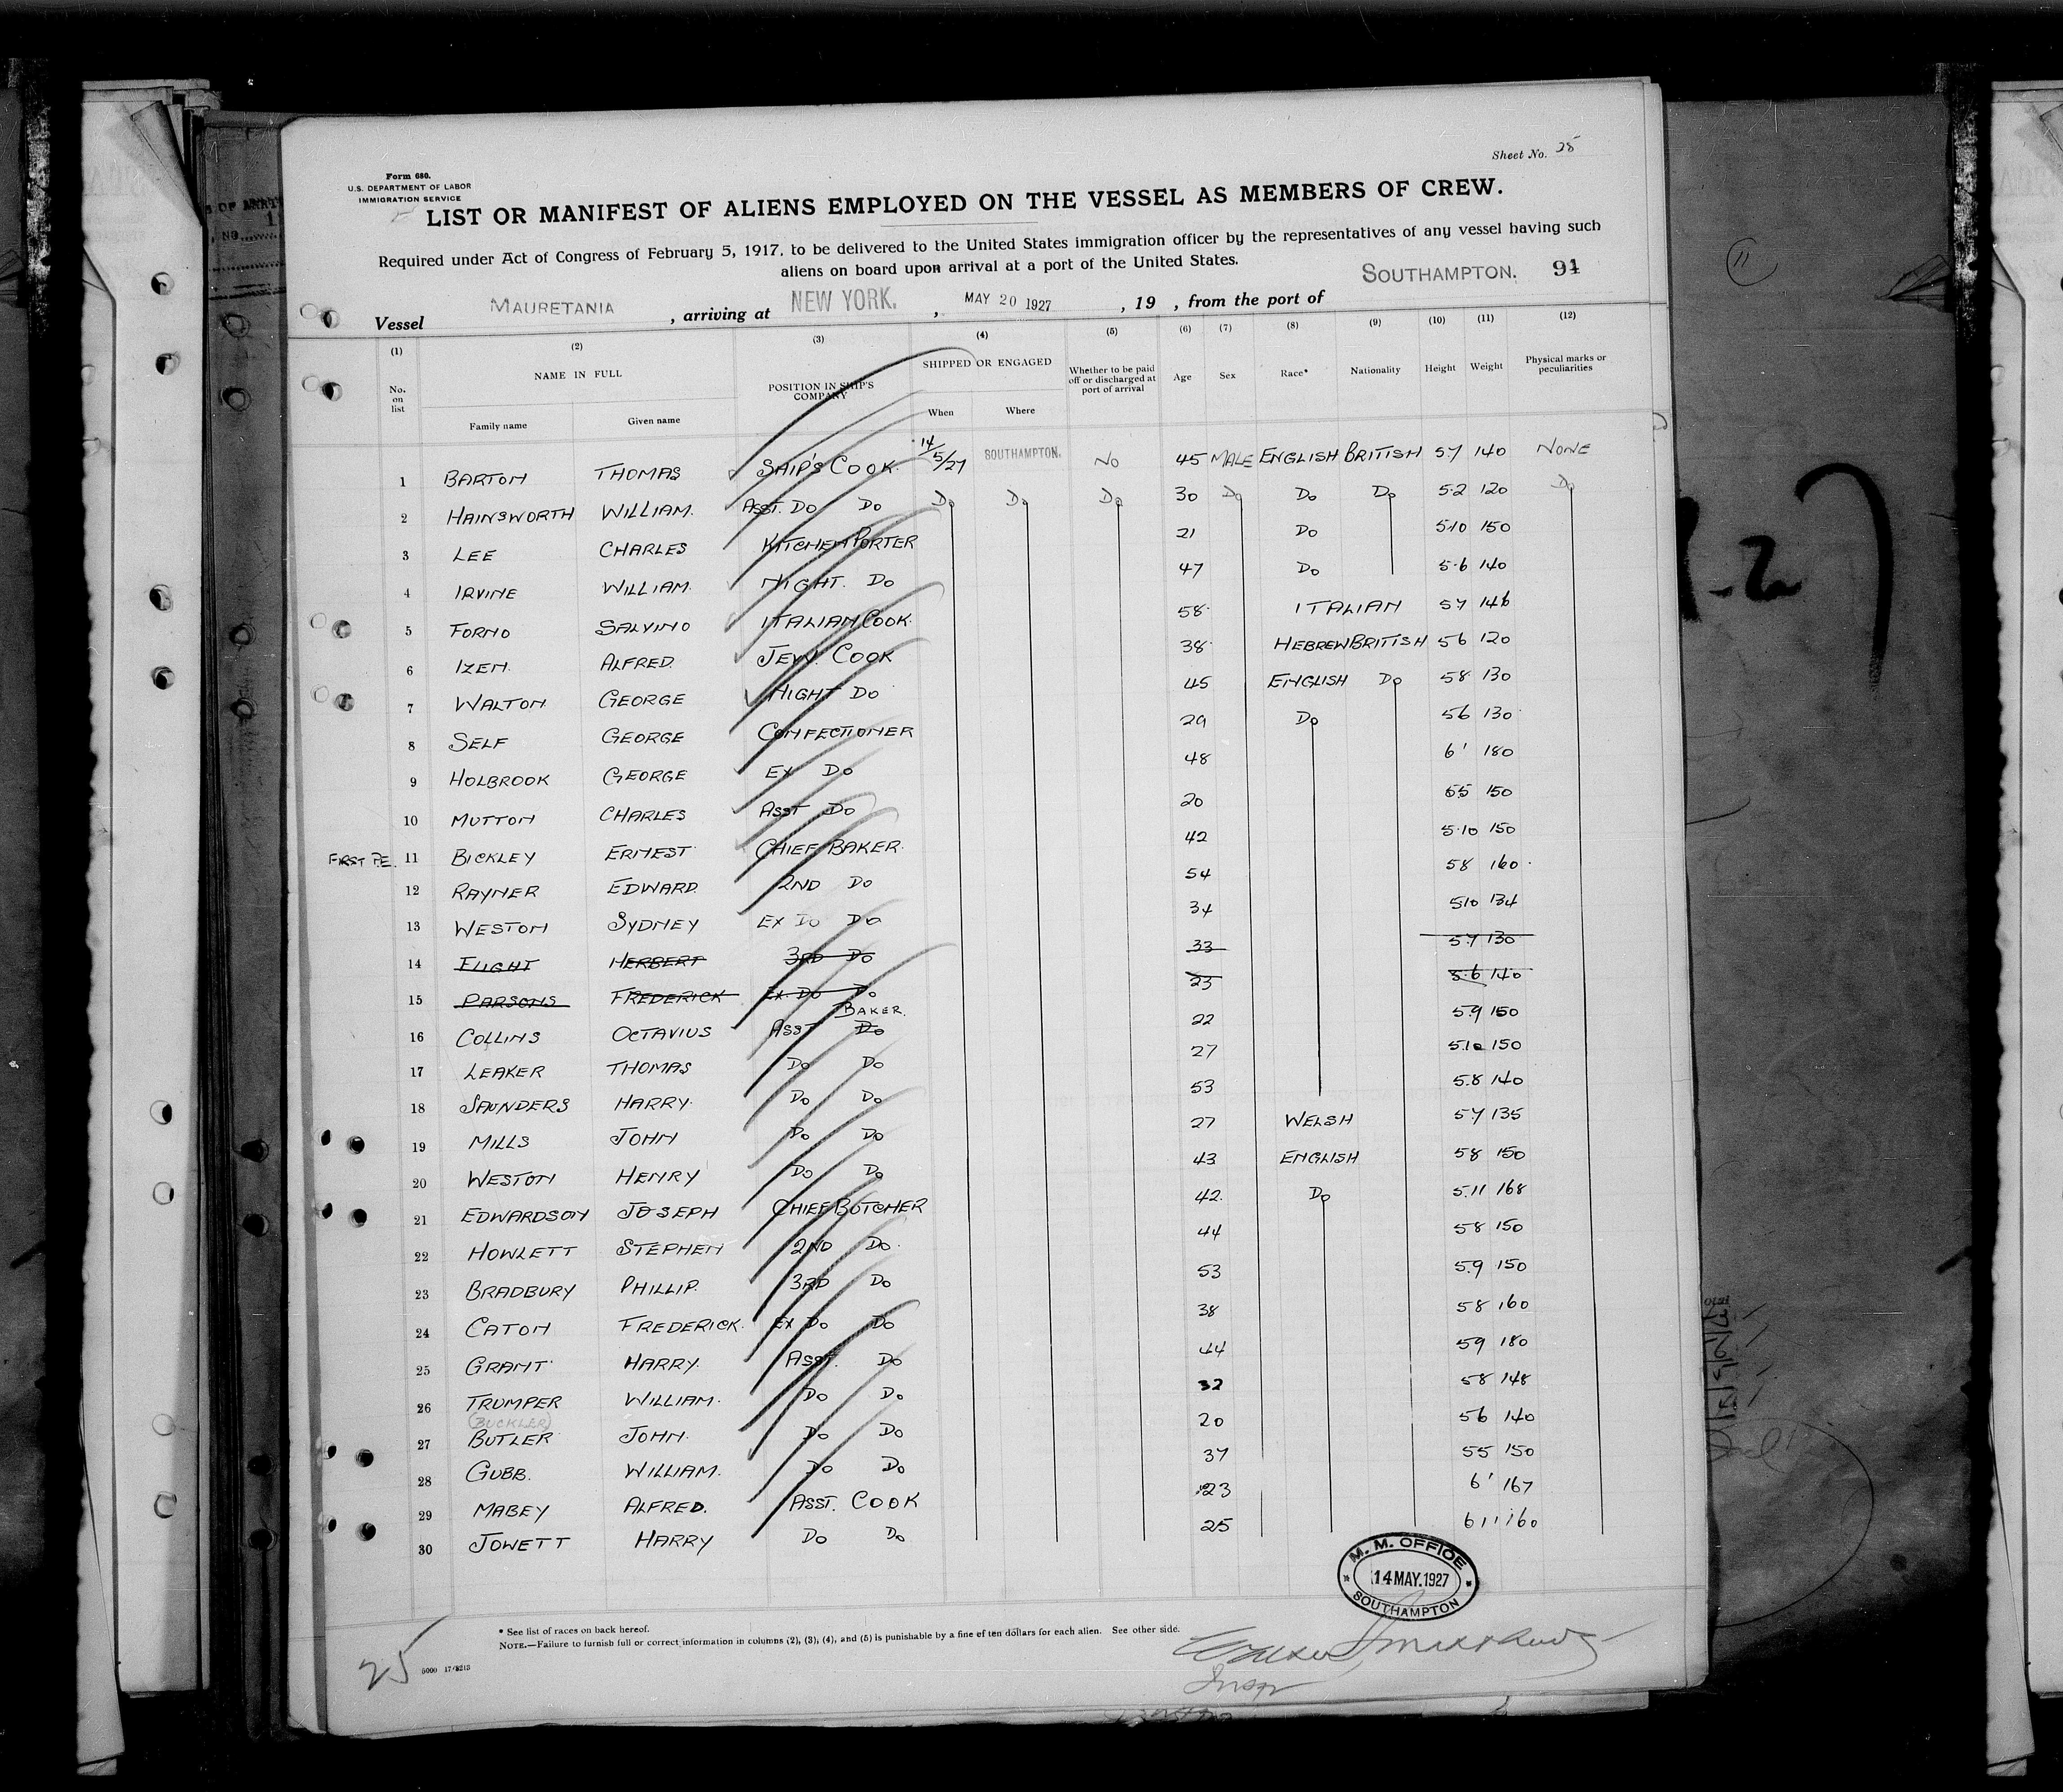 Sheet No. 28
Form 680.
U.S. DEPARTMENT OF LABOR
IMMIGRATION SERVICE
LIST OR MANIFEST OF ALIENS EMPLOYED ON THE VESSEL AS MEMBERS OF CREW.
Required under Act of Congress of February 5, 1917, to be delivered to the United States immigration officer by the representatives of any vessel having such
aliens on board upon arrival at a port of the United States.
Vessel MAURETANIA, arriving at NEW YORK., MAY 20 1927, 19 , from the port of SOUTHAMPTON. 91
(1) (2) (3) (4) (5) (6) (7) (8) (9) (10) (11) (12)
No. on list NAME IN FULL POSITION IN SHIP'S COMPANY SHIPPED OR ENGAGED Whether to be paid off or discharged at port of arrival Age Sex Race* Nationality Height Weight Physical marks or peculiarities
Family name Given name When Where
1 BARTON THOMAS SHIP'S COOK. 14/5/27 SOUTHAMPTON. NO 45 MALE ENGLISH BRITISH 57 140 NONE
2 HAINSWORTH WILLIAM. ASST. DO DO DO DO DO 30 DO DO DO 5.2 120 DO
3 LEE CHARLES KITCHEN PORTER 21 DO 5.10 150
4 IRVINE WILLIAM. NIGHT. DO 47 DO 5.6 140
5 FORNO SALVINO ITALIAN COOK. 58 ITALIAN 57 146
6 IZEN. ALFRED. JEW. COOK 38 HEBREW BRITISH 56 120
7 WALTON GEORGE NIGHT DO 45 ENGLISH DO 58 130
8 SELF GEORGE CONFECTIONER 29 DO 56 130
9 HOLBROOK GEORGE EX DO 48 6' 180
10 MUTTON CHARLES ASST DO 20 55 150
FIRST PE. 11 BICKLEY ERNEST CHIEF BAKER. 42 5.10 150
12 RAYNER EDWARD. 2ND DO 54 58 160
13 WESTON SYDNEY EX DO DO 34 510 134
14 FLIGHT HERBERT 3RD DO 33 5.7 130
15 PARSONS FREDERICK EX. DO DO 23 5.6 140
16 COLLINS OCTAVIUS ASST DO BAKER. 22 5.9 150
17 LEAKER THOMAS DO DO 27 5.10 150
18 SAUNDERS HARRY. DO DO 53 5.8 140
19 MILLS JOHN DO DO 27 WELSH 57 135
20 WESTON HENRY DO DO 43 ENGLISH 58 150
21 EDWARDSON JOSEPH CHIEF BUTCHER 42 DO 5.11 168
22 HOWLETT STEPHEN 2ND DO. 44 58 150
23 BRADBURY PHILLIP. 3RD DO 53 59 150
24 CATON FREDERICK. EX DO DO 38 58 160
25 GRANT HARRY. ASST. DO 44 59 180
26 TRUMPER WILLIAM. DO DO 32 58 148
(BUCKLER)
27 BUTLER JOHN. DO DO 20 56 140
28 GUBB. WILLIAM. DO DO 37 55 150
29 MABEY ALFRED. ASST. COOK 23 6' 167
30 JOWETT HARRY DO DO 25 611 160
M. M. OFFICE
14 MAY. 1927
SOUTHAMPTON
* See list of races on back hereof.
NOTE.—Failure to furnish full or correct information in columns (2), (3), (4), and (5) is punishable by a fine of ten dollars for each alien. See other side.
25
5000 17/8213
Insp